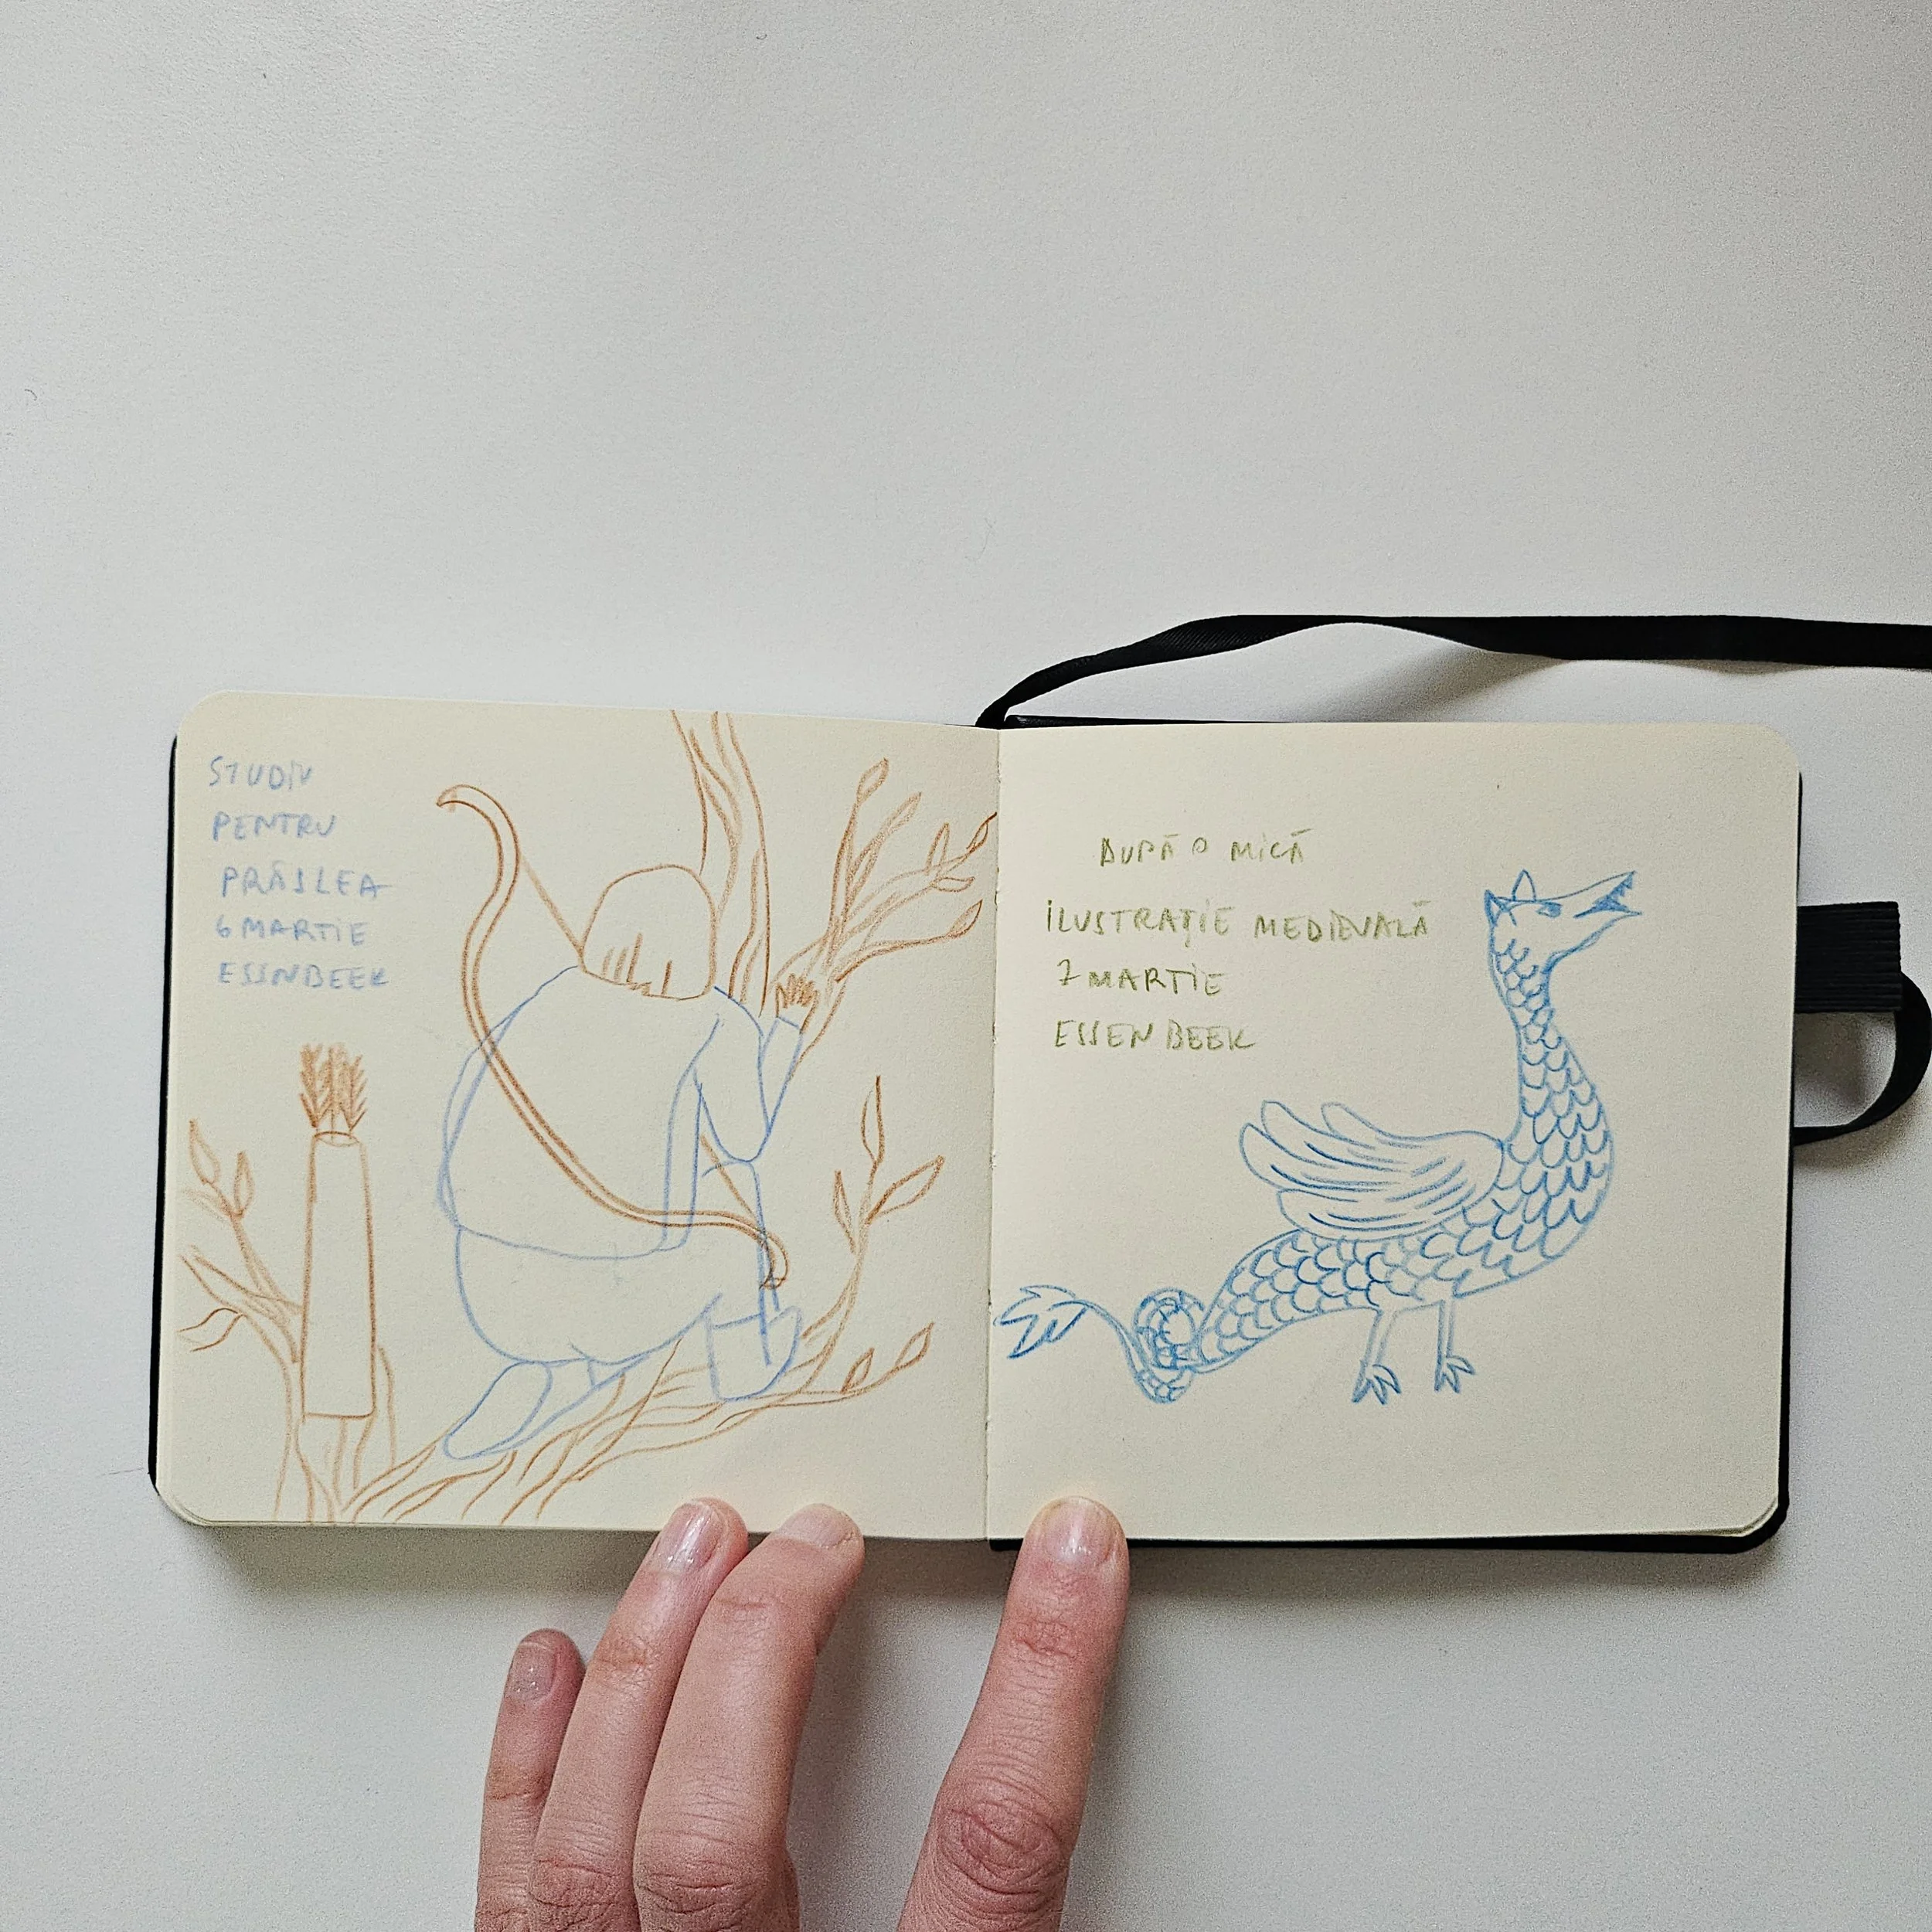 STUDIU
PENTRU
PRÂSLEA
6 MARTIE
ESSNBEEK
DUPĂ O MICĂ
ILUSTRAȚIE MEDIEVALĂ
7 MARTIE
ESSENBEEK